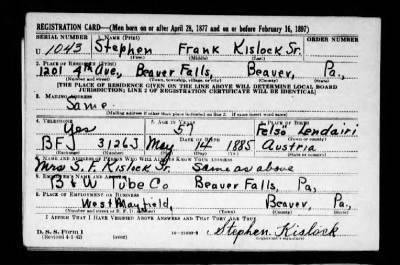 REGISTRATION CARD—(Men born on or after April 28, 1877 and on or before February 16, 1897)
SERIAL NUMBER 1. NAME (Print) ORDER NUMBER
U 1043 Stephen Frank Kislock Sr.
(First) (Middle) (Last)
2. PLACE OF RESIDENCE (Print)
1201 4th Ave., Beaver Falls, Beaver, Pa.,
(Number and street) (Town, township, village, or city) (County) (State)
[THE PLACE OF RESIDENCE GIVEN ON THE LINE ABOVE WILL DETERMINE LOCAL BOARD
JURISDICTION; LINE 2 OF REGISTRATION CERTIFICATE WILL BE IDENTICAL]
3. MAILING ADDRESS
Same.
[Mailing address if other than place indicated on line 2. If same insert word same]
4. TELEPHONE 5. AGE IN YEARS 6. PLACE OF BIRTH
Yes 57 Felso Lendairi
DATE OF BIRTH
BFJ 3126J May 14 1885 Austria
(Exchange) (Number) (Mo.) (Day) (Yr.) (State or country)
7. NAME AND ADDRESS OF PERSON WHO WILL ALWAYS KNOW YOUR ADDRESS
Mrs S. F. Kislock Sr. Same as above
8. EMPLOYER'S NAME AND ADDRESS
B & W Tube Co Beaver Falls, Pa,
9. PLACE OF EMPLOYMENT OR BUSINESS
West Mayfield, Beaver, Pa.,
(Number and street or R. F. D. number) (Town) (County) (State)
I AFFIRM THAT I HAVE VERIFIED ABOVE ANSWERS AND THAT THEY ARE TRUE.
D. S. S. Form 1
(Revised 4-1-42) (over) Stephen. Kislock
(Registrant's signature)